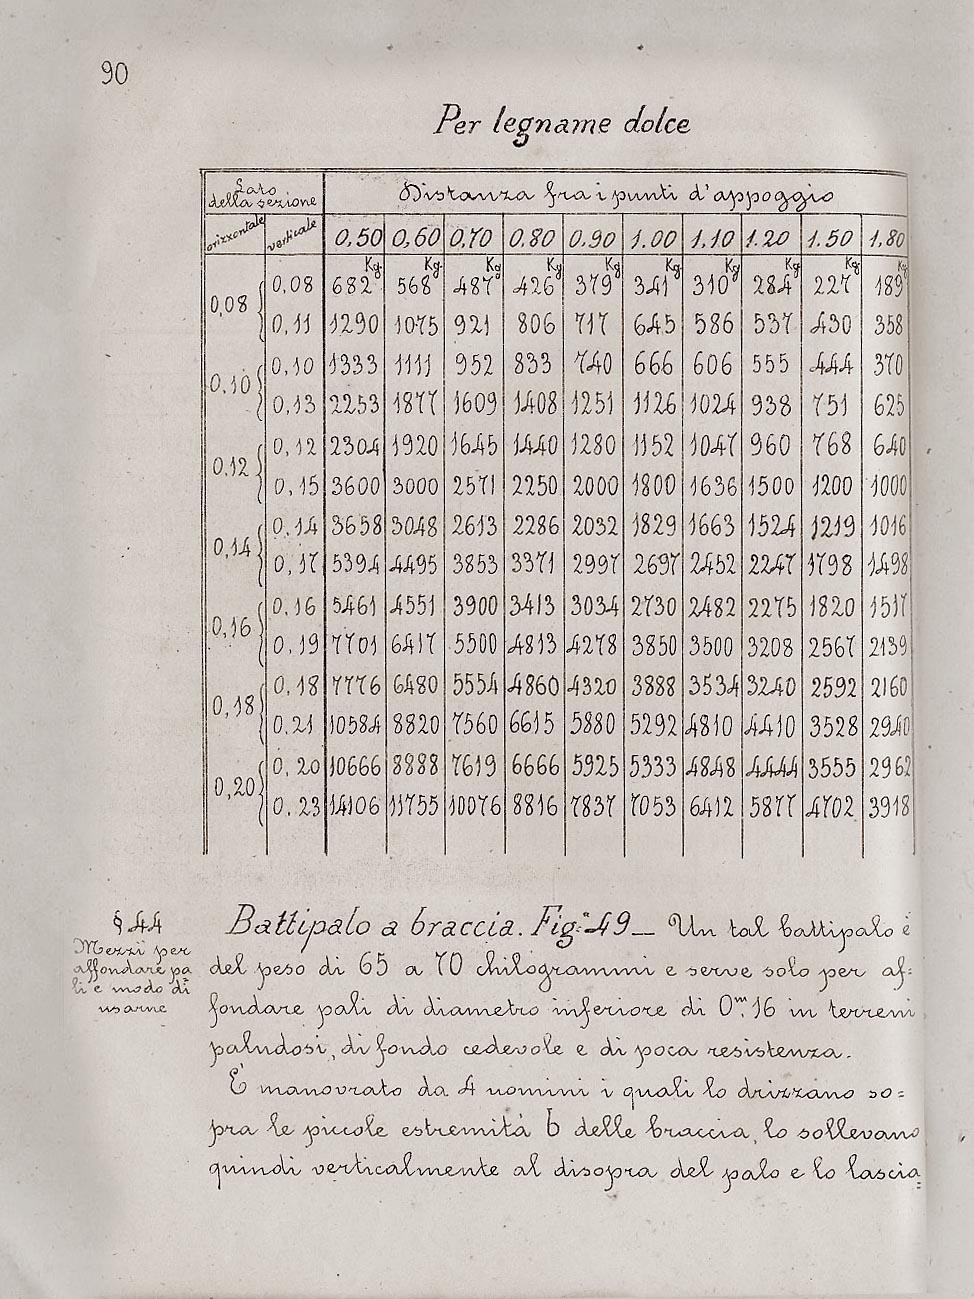 90
Per legname dolce
Lato della sezione Distanza fra i punti d'appoggio
orizzontale verticale 0,50 0,60 0,70 0,80 0.90 1.00 1,10 1.20 1.50 1,80
Kg Kg Kg Kg Kg Kg Kg Kg Kg Kg
0,08 0,08 682 568 487 426 379 341 310 284 227 189
0,11 1290 1075 921 806 717 645 586 537 430 358
0,10 0,10 1333 1111 952 833 740 666 606 555 444 370
0,13 2253 1877 1609 1408 1251 1126 1024 938 751 625
0,12 0,12 2304 1920 1645 1440 1280 1152 1047 960 768 640
0,15 3600 3000 2571 2250 2000 1800 1636 1500 1200 1000
0,14 0,14 3658 3048 2613 2286 2032 1829 1663 1524 1219 1016
0,17 5394 4495 3853 3371 2997 2697 2452 2247 1798 1498
0,16 0,16 5461 4551 3900 3413 3034 2730 2482 2275 1820 1517
0,19 7701 6417 5500 4813 4278 3850 3500 3208 2567 2139
0,18 0,18 7776 6480 5554 4860 4320 3888 3534 3240 2592 2160
0.21 10584 8820 7560 6615 5880 5292 4810 4410 3528 2940
0,20 0,20 10666 8888 7619 6666 5925 5333 4848 4444 3555 2962
0.23 14106 11755 10076 8816 7837 7053 6412 5877 4702 3918
§ 44
Mezzi per
affondare pa
li e modo di
usarne
Battipalo a braccia. Fig.ª 49_ Un tal battipalo è
del peso di 65 a 70 chilogrammi e serve solo per af=
fondare pali di diametro inferiore di 0,ᵐ16 in terreni
paludosi, di fondo cedevole e di poca resistenza.
È manovrato da 4 uomini i quali lo drizzano so=
pra le piccole estremità b delle braccia, lo sollevano
quindi verticalmente al disopra del palo e lo lascia=